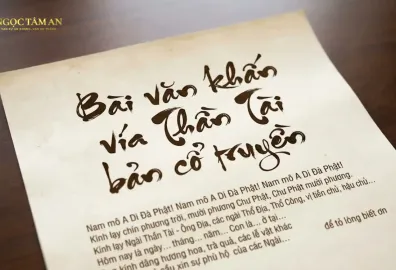 NGỌC TÂM AN
Bài văn khấn
vía Thần Tài
bản cổ truyền
Nam mô A Di Đà Phật! Nam mô A Di Đà Phật! Nam mô A Di Đà Phật!
Kính lạy chín phương trời, mười phương Chư Phật, Chư Phật mười phương.
Kính lạy Ngài Thần Tài - Ông Địa, các ngài Thổ Địa, Thổ Công, vị tiền chủ, hậu chủ...
Hôm nay là ngày... tháng... năm... Con là... ở tại...
kính dâng hương hoa, trà quả, các lễ vật khác để tỏ lòng biết ơn
cầu xin sự phù hộ của các Ngài...